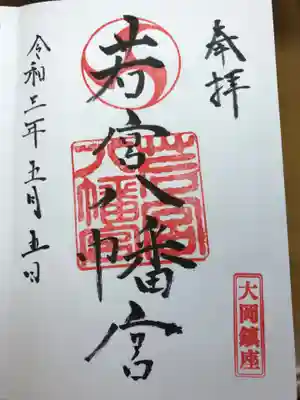 奉拝
若宮八幡宮
若宮
八幡宮
大岡鎮座
令和三年五月五日